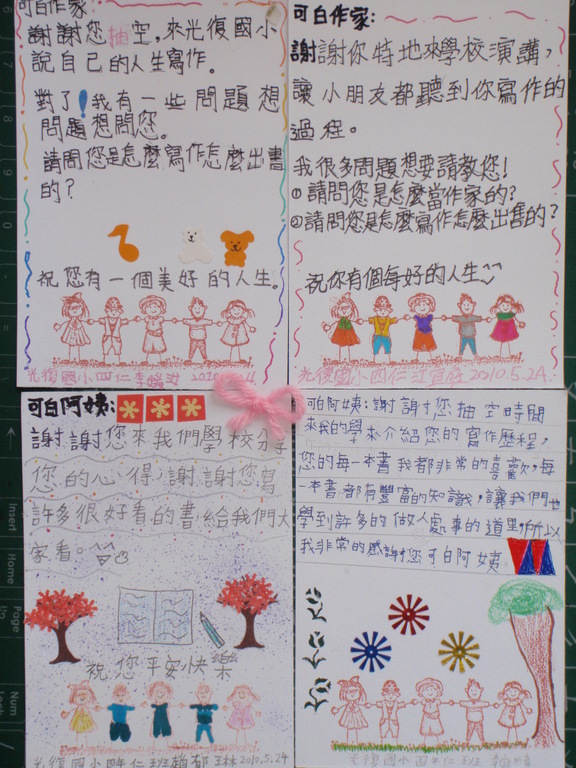 可白作家:
謝謝您抽空,來光復國小
說自己的人生寫作。
對了!我有一些問題想
問題想問您。
請問您是怎麼寫作怎麼出書
的?
祝您有一個美好的人生。
光復國小四仁李
可白作家:
謝謝你特地來學校演講,
讓小朋友都聽到你寫作的
過程。
我很多問題想要請教您!
①請問您是怎麼當作家的?
②請問您是怎麼寫作怎麼出售的?
祝你有個每好的人生~
光復國小四仁江 2010.5.24
可白阿姨:
謝謝您來我們學校分享
您的心得,謝謝您寫
許多很好看的書給我們大
家看。
祝您平安快樂
光復國小四年仁班趙郁琳2010.5.24
可白阿姨:謝謝您抽空時間
來我的學來介紹您的寫作歷程,
您的每一本書我都非常的喜歡,每
一本書都有豐富的知識,讓我們也
學到許多的做人處事的道里,所以
我非常的感謝您可白阿姨
光復國小四年仁班
Insert
Home
Page
Up
Num
Lock